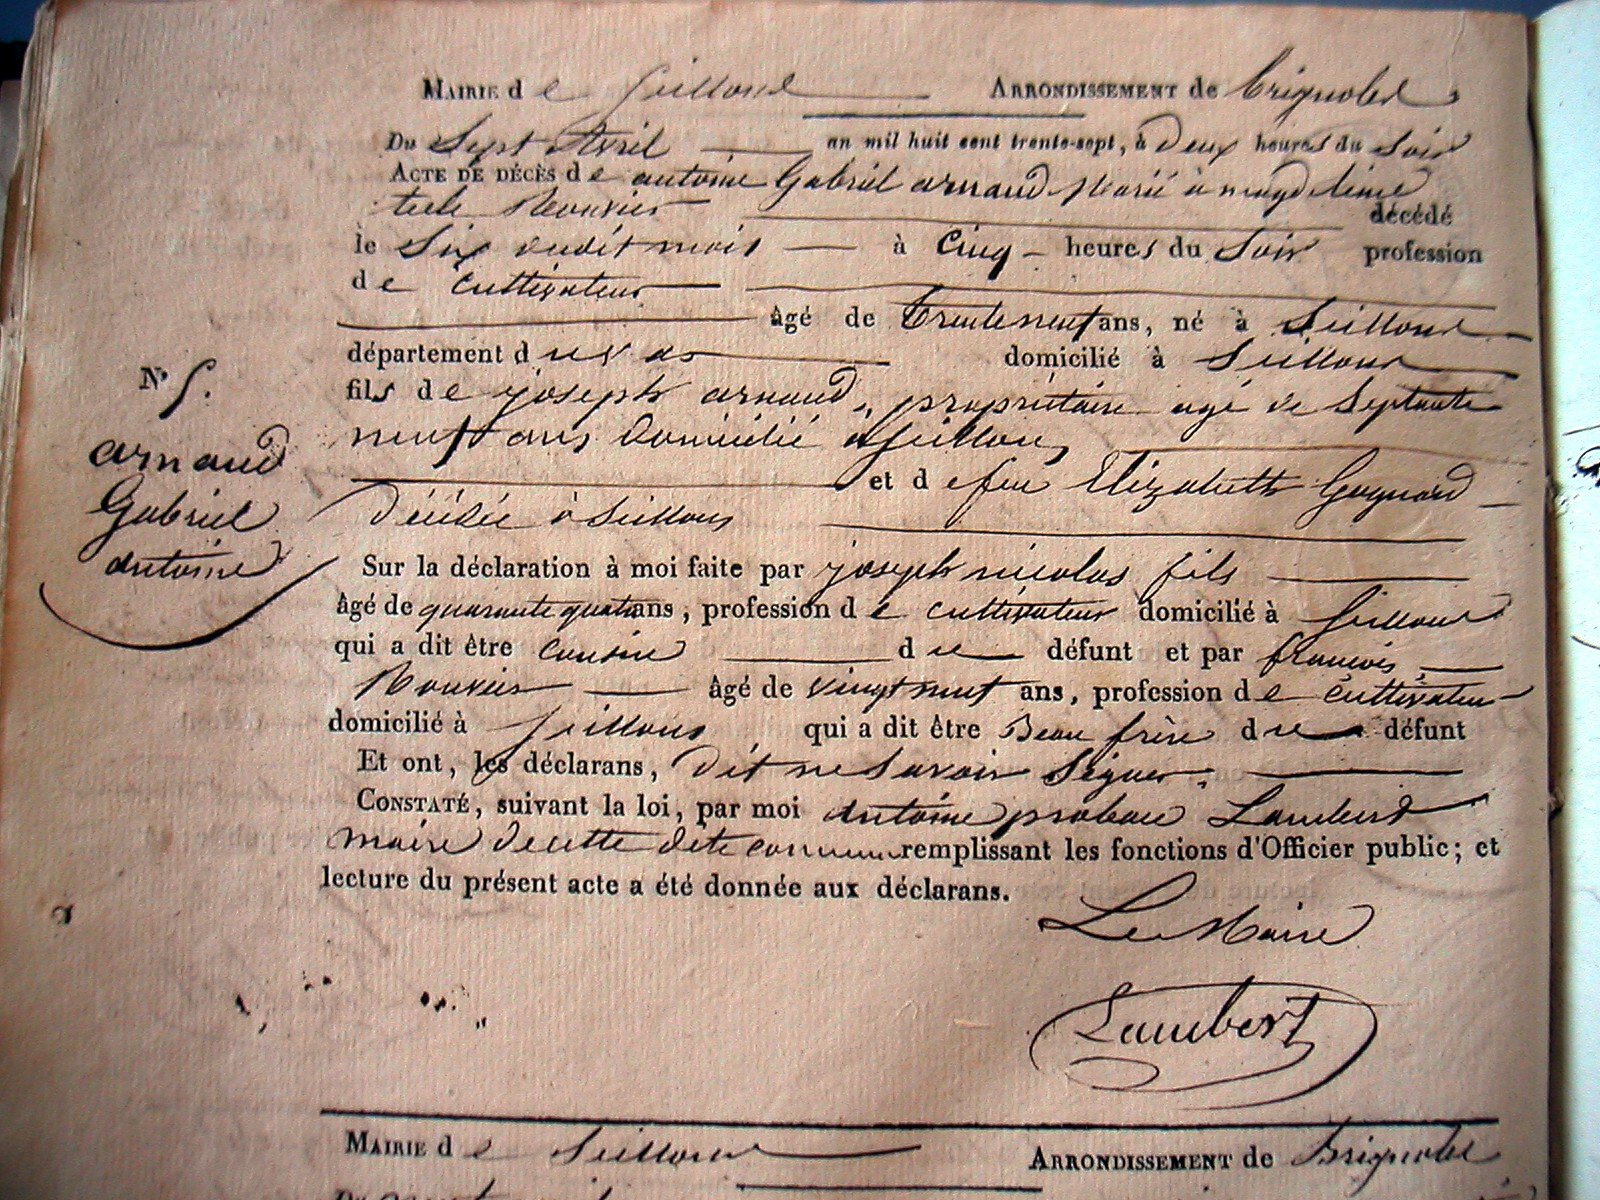 Mairie de Seillons Arrondissement de Brignoles
Du Sept Avril an mil huit cent trente-sept, à Deux heures du Soir
Acte de décès de antoine Gabriel arnaud Marié à magdeleine
Rouvier décédé
le Six dudit mois à Cinq heures du Soir profession
de cultivateur
âgé de Trente neuf ans, né à Seillons
département du var domicilié à Seillons
fils de joseph arnaud, propriétaire agé de Septante
neuf ans Domicilié a Seillons
et de feu Elizabeth Gagnard
Décédée à Seillons
N° 5.
arnaud
Gabriel
antoine
Sur la déclaration à moi faite par joseph nicolas fils
âgé de quarante quatre ans, profession de cultivateur domicilié à Seillons
qui a dit être cousin du défunt et par francois
Rouvier âgé de vingt neuf ans, profession de cultivateur
domicilié à Seillons qui a dit être Beau frère du défunt
Et ont, les déclarans, dit ne Savoir Signer.
Constaté, suivant la loi, par moi Antoine probace Lambert
maire de cette dite commune remplissant les fonctions d'Officier public; et
lecture du présent acte a été donnée aux déclarans.
Le Maire
Lambert
Mairie de Seillons Arrondissement de Brignoles